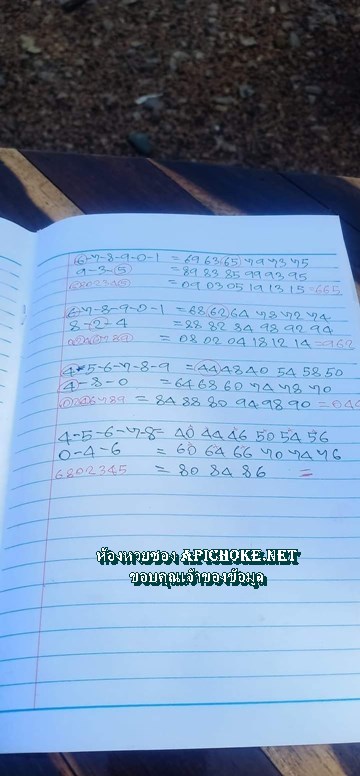 6-7-8-9-0-1 = 69 63 65 79 73 75
9-3-5 = 89 83 85 99 93 95
= 09 03 05 19 13 15 = 665
6-7-8-9-0-1 = 68 62 64 78 72 74
8-2-4 = 88 82 84 98 92 94
= 08 02 04 18 12 14 = 962
4-5-6-7-8-9 = 44 48 40 54 58 50
4-8-0 = 64 68 60 74 78 70
= 84 88 80 94 98 90 =
4-5-6-7-8 = 40 44 46 50 54 56
0-4-6 = 60 64 66 70 74 76
6802345 = 80 84 86 =
ห้องหวยซอง APICHOKE.NET
ขอบคุณเจ้าของข้อมูล